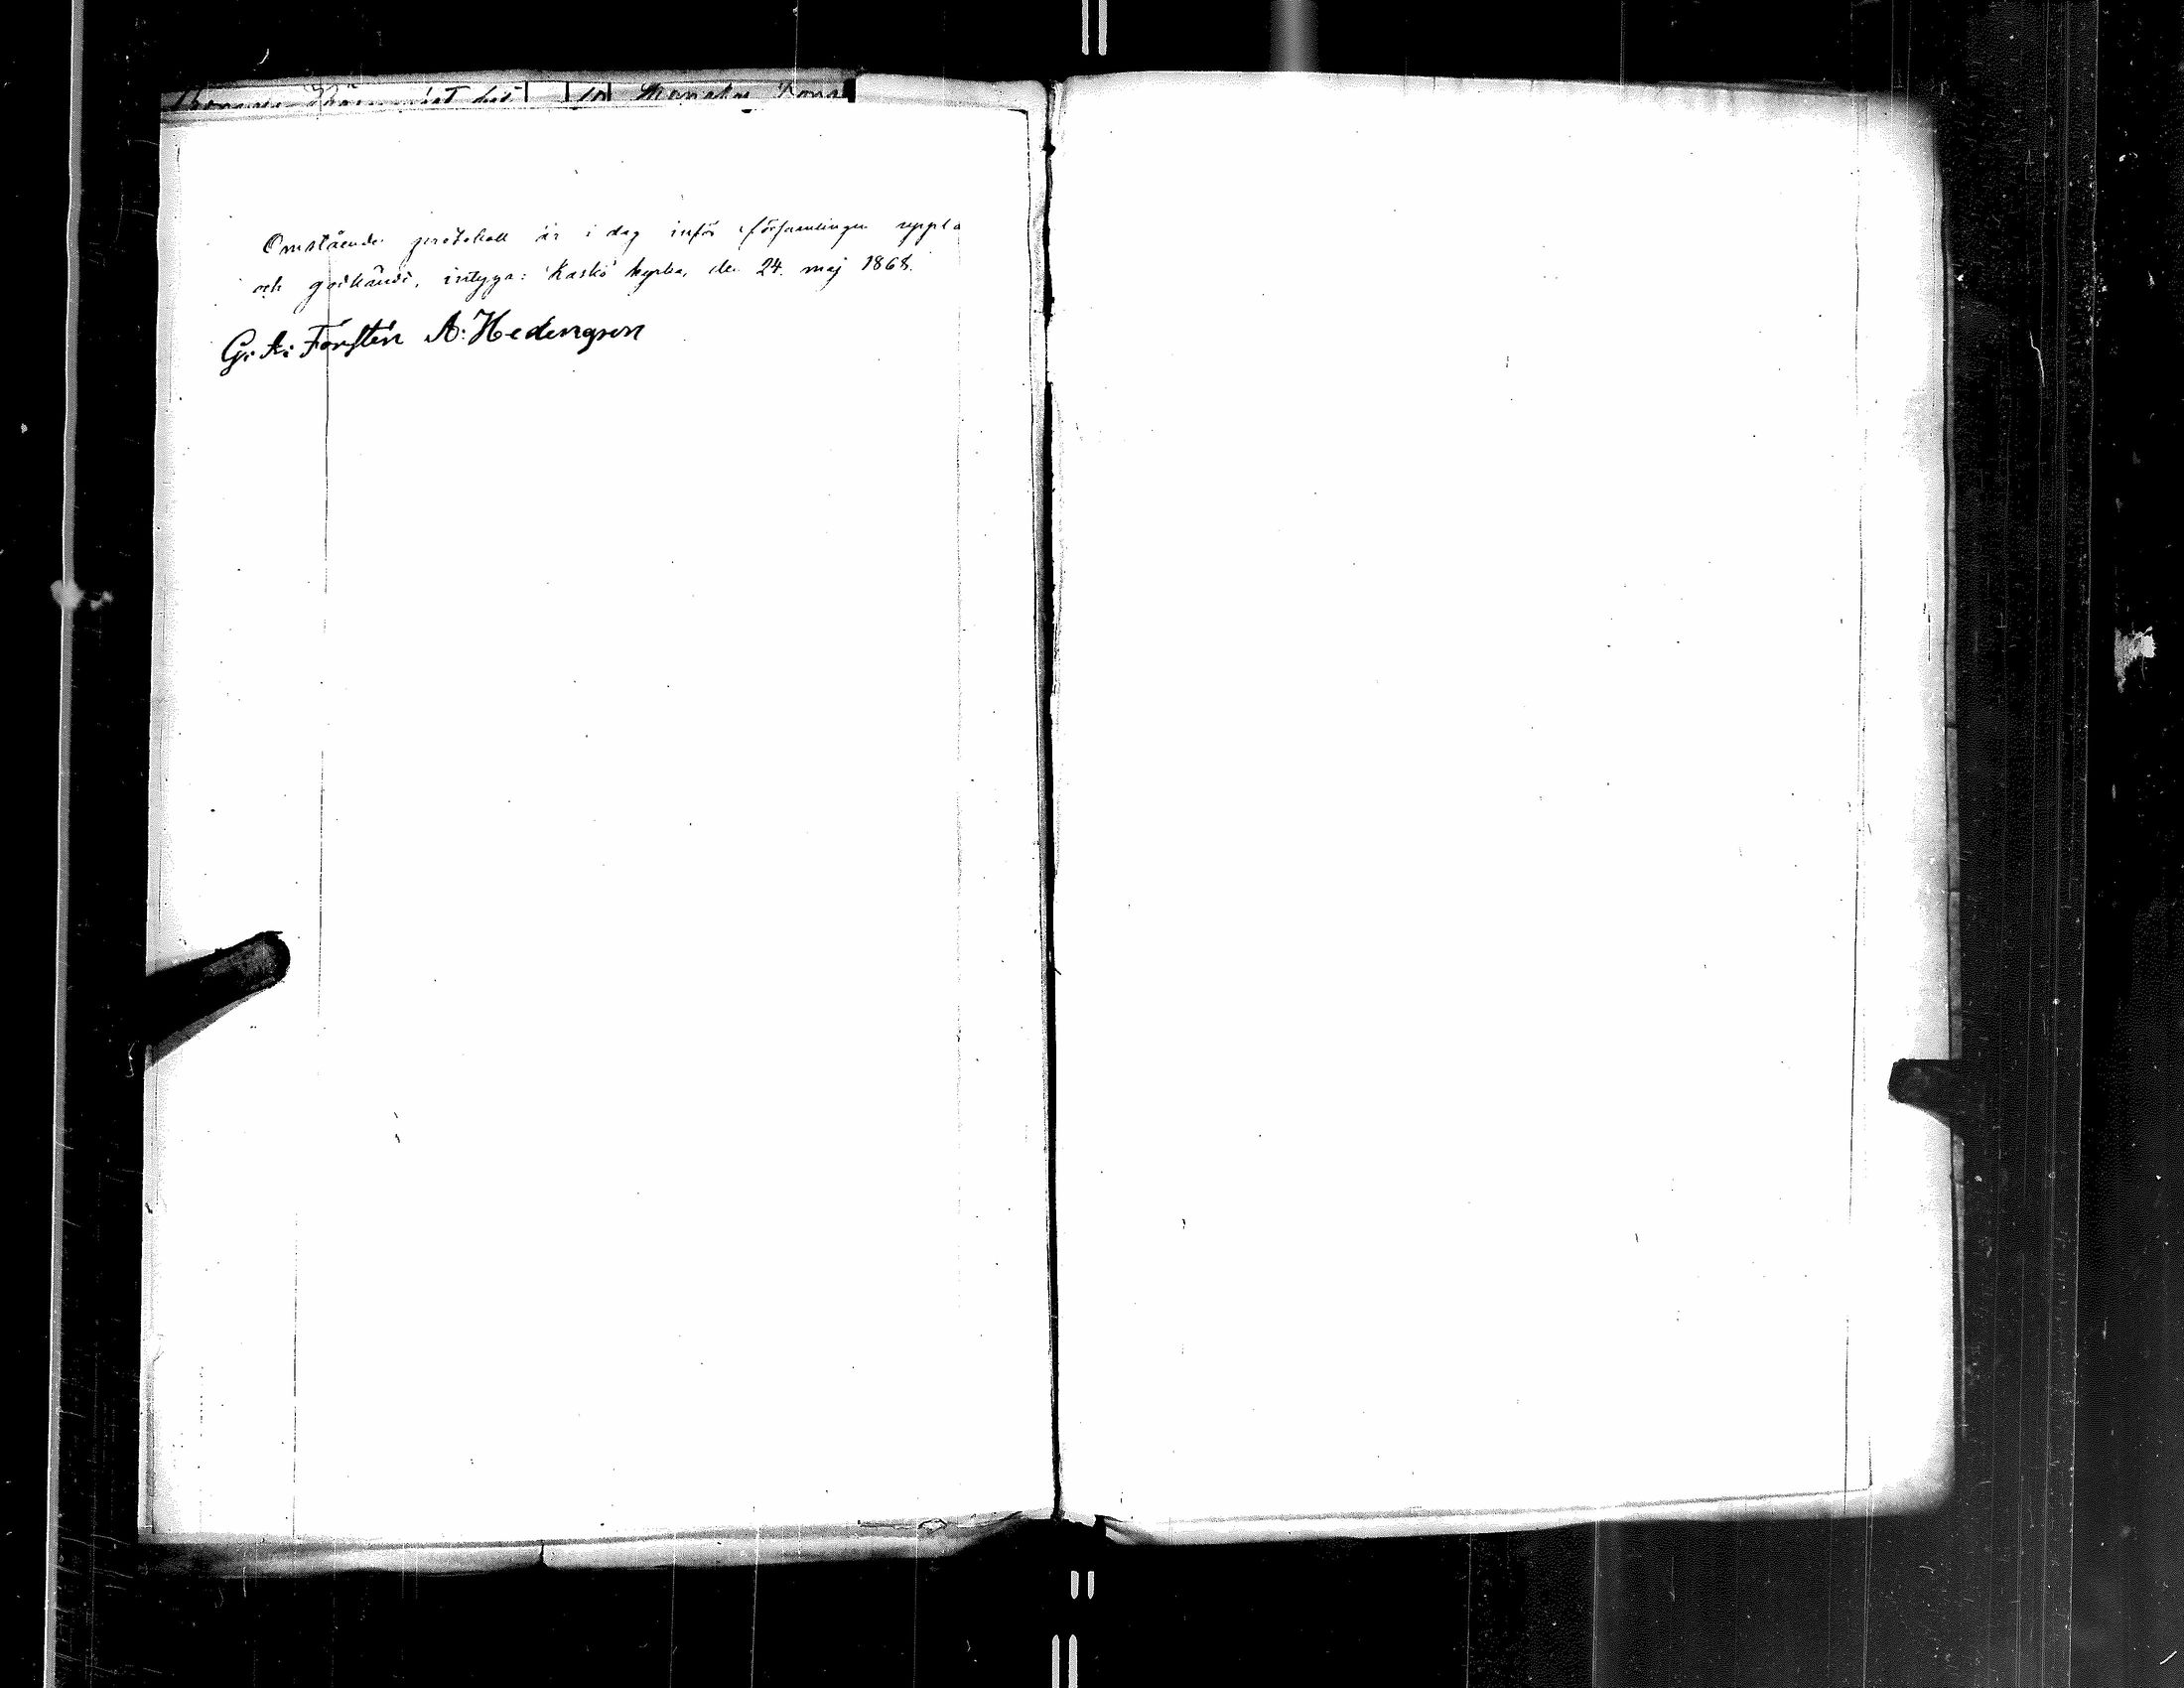 Omstående protokoll är i dag inför församlingen uppl
och godkändt, intyga: Kaskö kyrka, den 24. maj 1868.
G: A: Forstén A: Hedengren